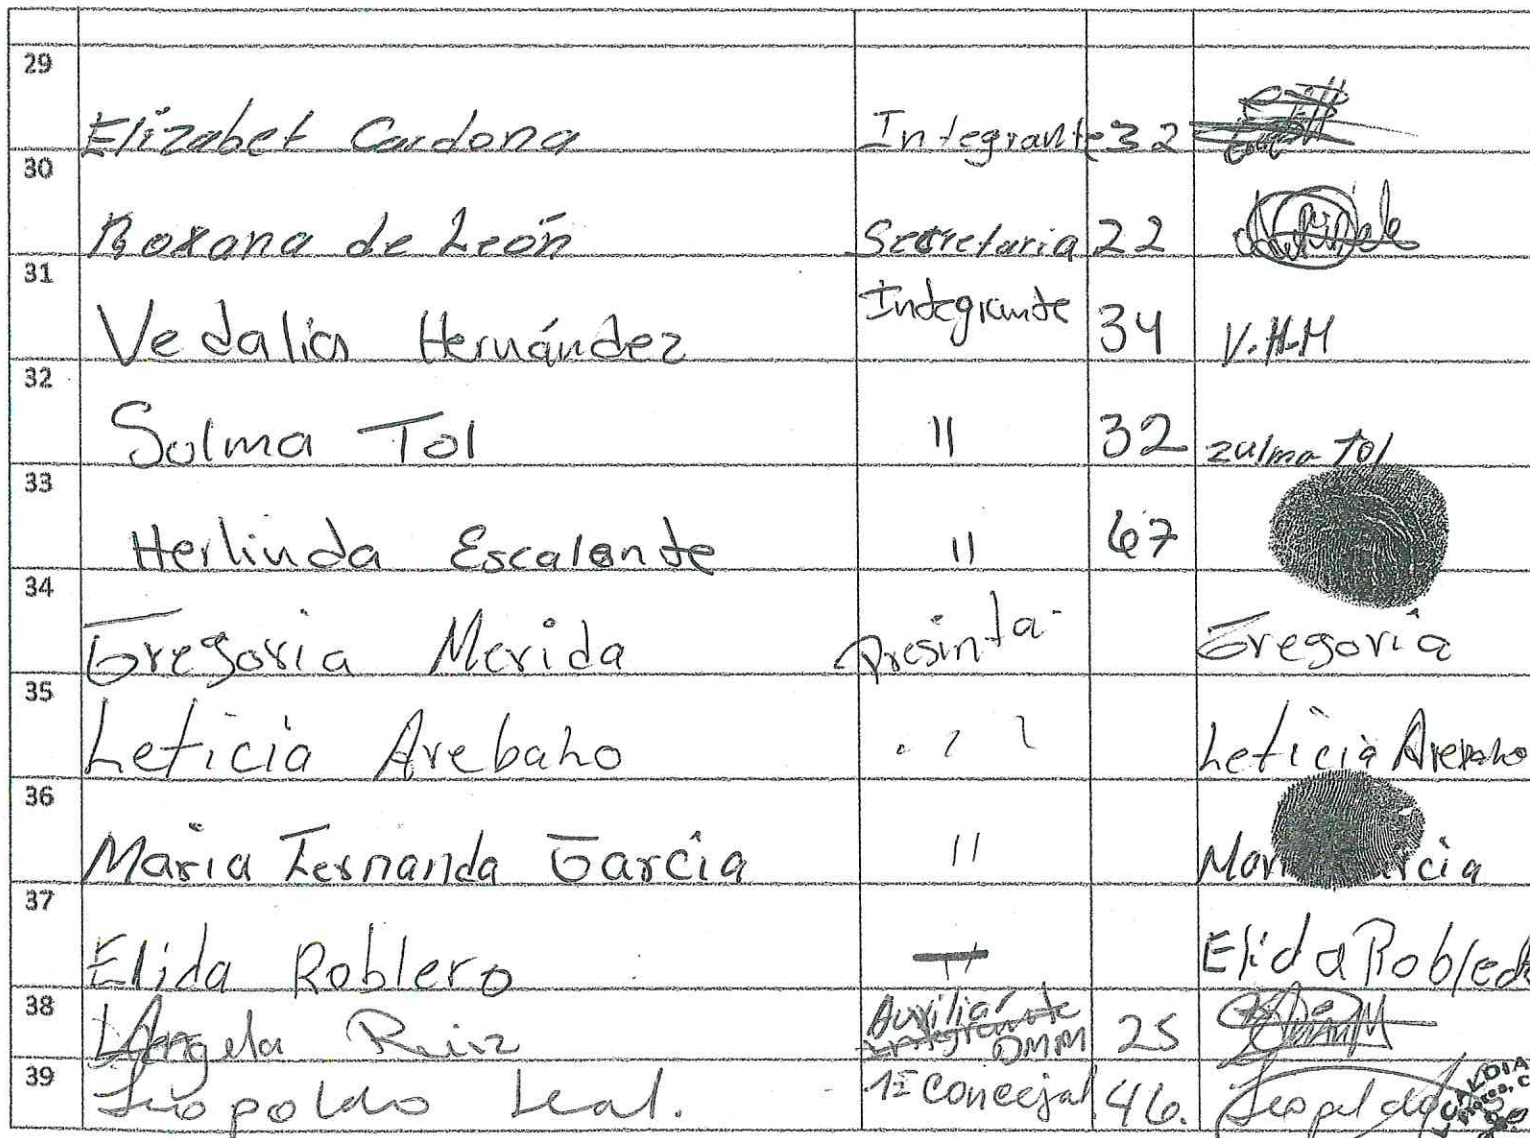 29
Elizabet Cardona Integrante 32
30
Roxana de León Secretaria 22
31
Vedalia Hernández Integrante 34 V.H.M
32
Solma Tol 11 32 zulma tol
33
Herlinda Escalante 11 67
34
Gregoria Merida Presinta Gregoria
35
Leticia Arebaho Leticia Arebaho
36
Maria Fernanda Garcia 11 Garcia
37
Elida Roblero Elida Robledo
38
Angela Ruiz Auxiliar OMM 25
39
Leopoldo Leal. 1º Concejal 46. Leopoldo